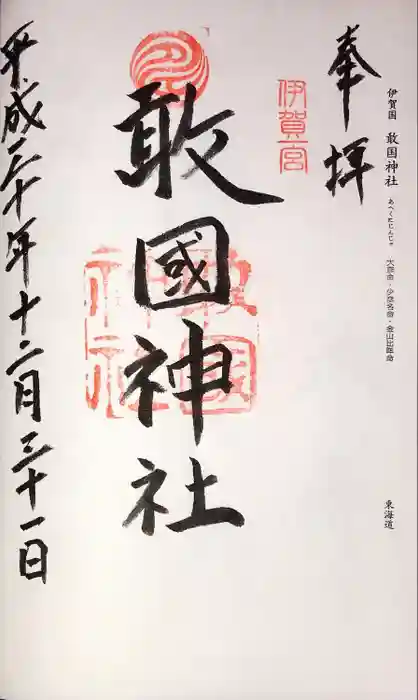 伊賀国 敢国神社 あへくにじんじゃ 大彦命・少彦名命・金山比咩命
東海道
奉拝
伊賀一宮
敢國神社
敢國神社
平成三十年十二月三十一日